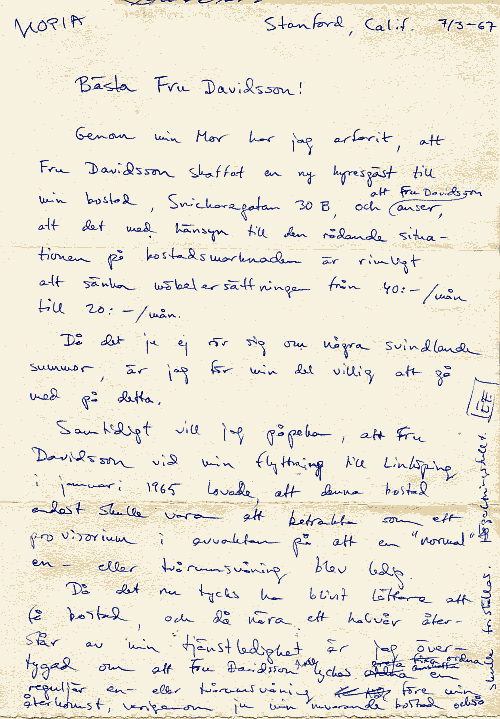 KOPIA
Stanford, Calif. 7/3-67
Bästa Fru Davidsson!
Genom min Mor har jag erfarit, att
Fru Davidsson skaffat en ny hyresgäst till
min bostad, Snickaregatan 30 B, och att Fru Davidsson anser,
att det med hänsyn till den rådande situa-
tionen på bostadsmarknaden är rimligt
att sänka möbelersättningen från 40:-/mån
till 20:-/mån.
Då det ju ej rör sig om några svindlande
summor, är jag för min del villig att gå
med på detta.
Samtidigt vill jag påpeka, att Fru
Davidsson vid min flyttning till Linköping
i januari 1965 lovade, att denna bostad
endast skulle vara att betrakta som ett
provisorium i avvaktan på att en "normal"
en- eller tvårumsvåning blev ledig.
Då det nu tycks ha blivit lättare att
få bostad, och då nära ett halvår åter-
står av min tjänstledighet är jag över-
tygad om att Fru Davidsson lyckas ordna en
reguljär en- eller tvårumsvåning före min
återkomst, varigenom ju min nuvarande bostad också
skulle friställas.